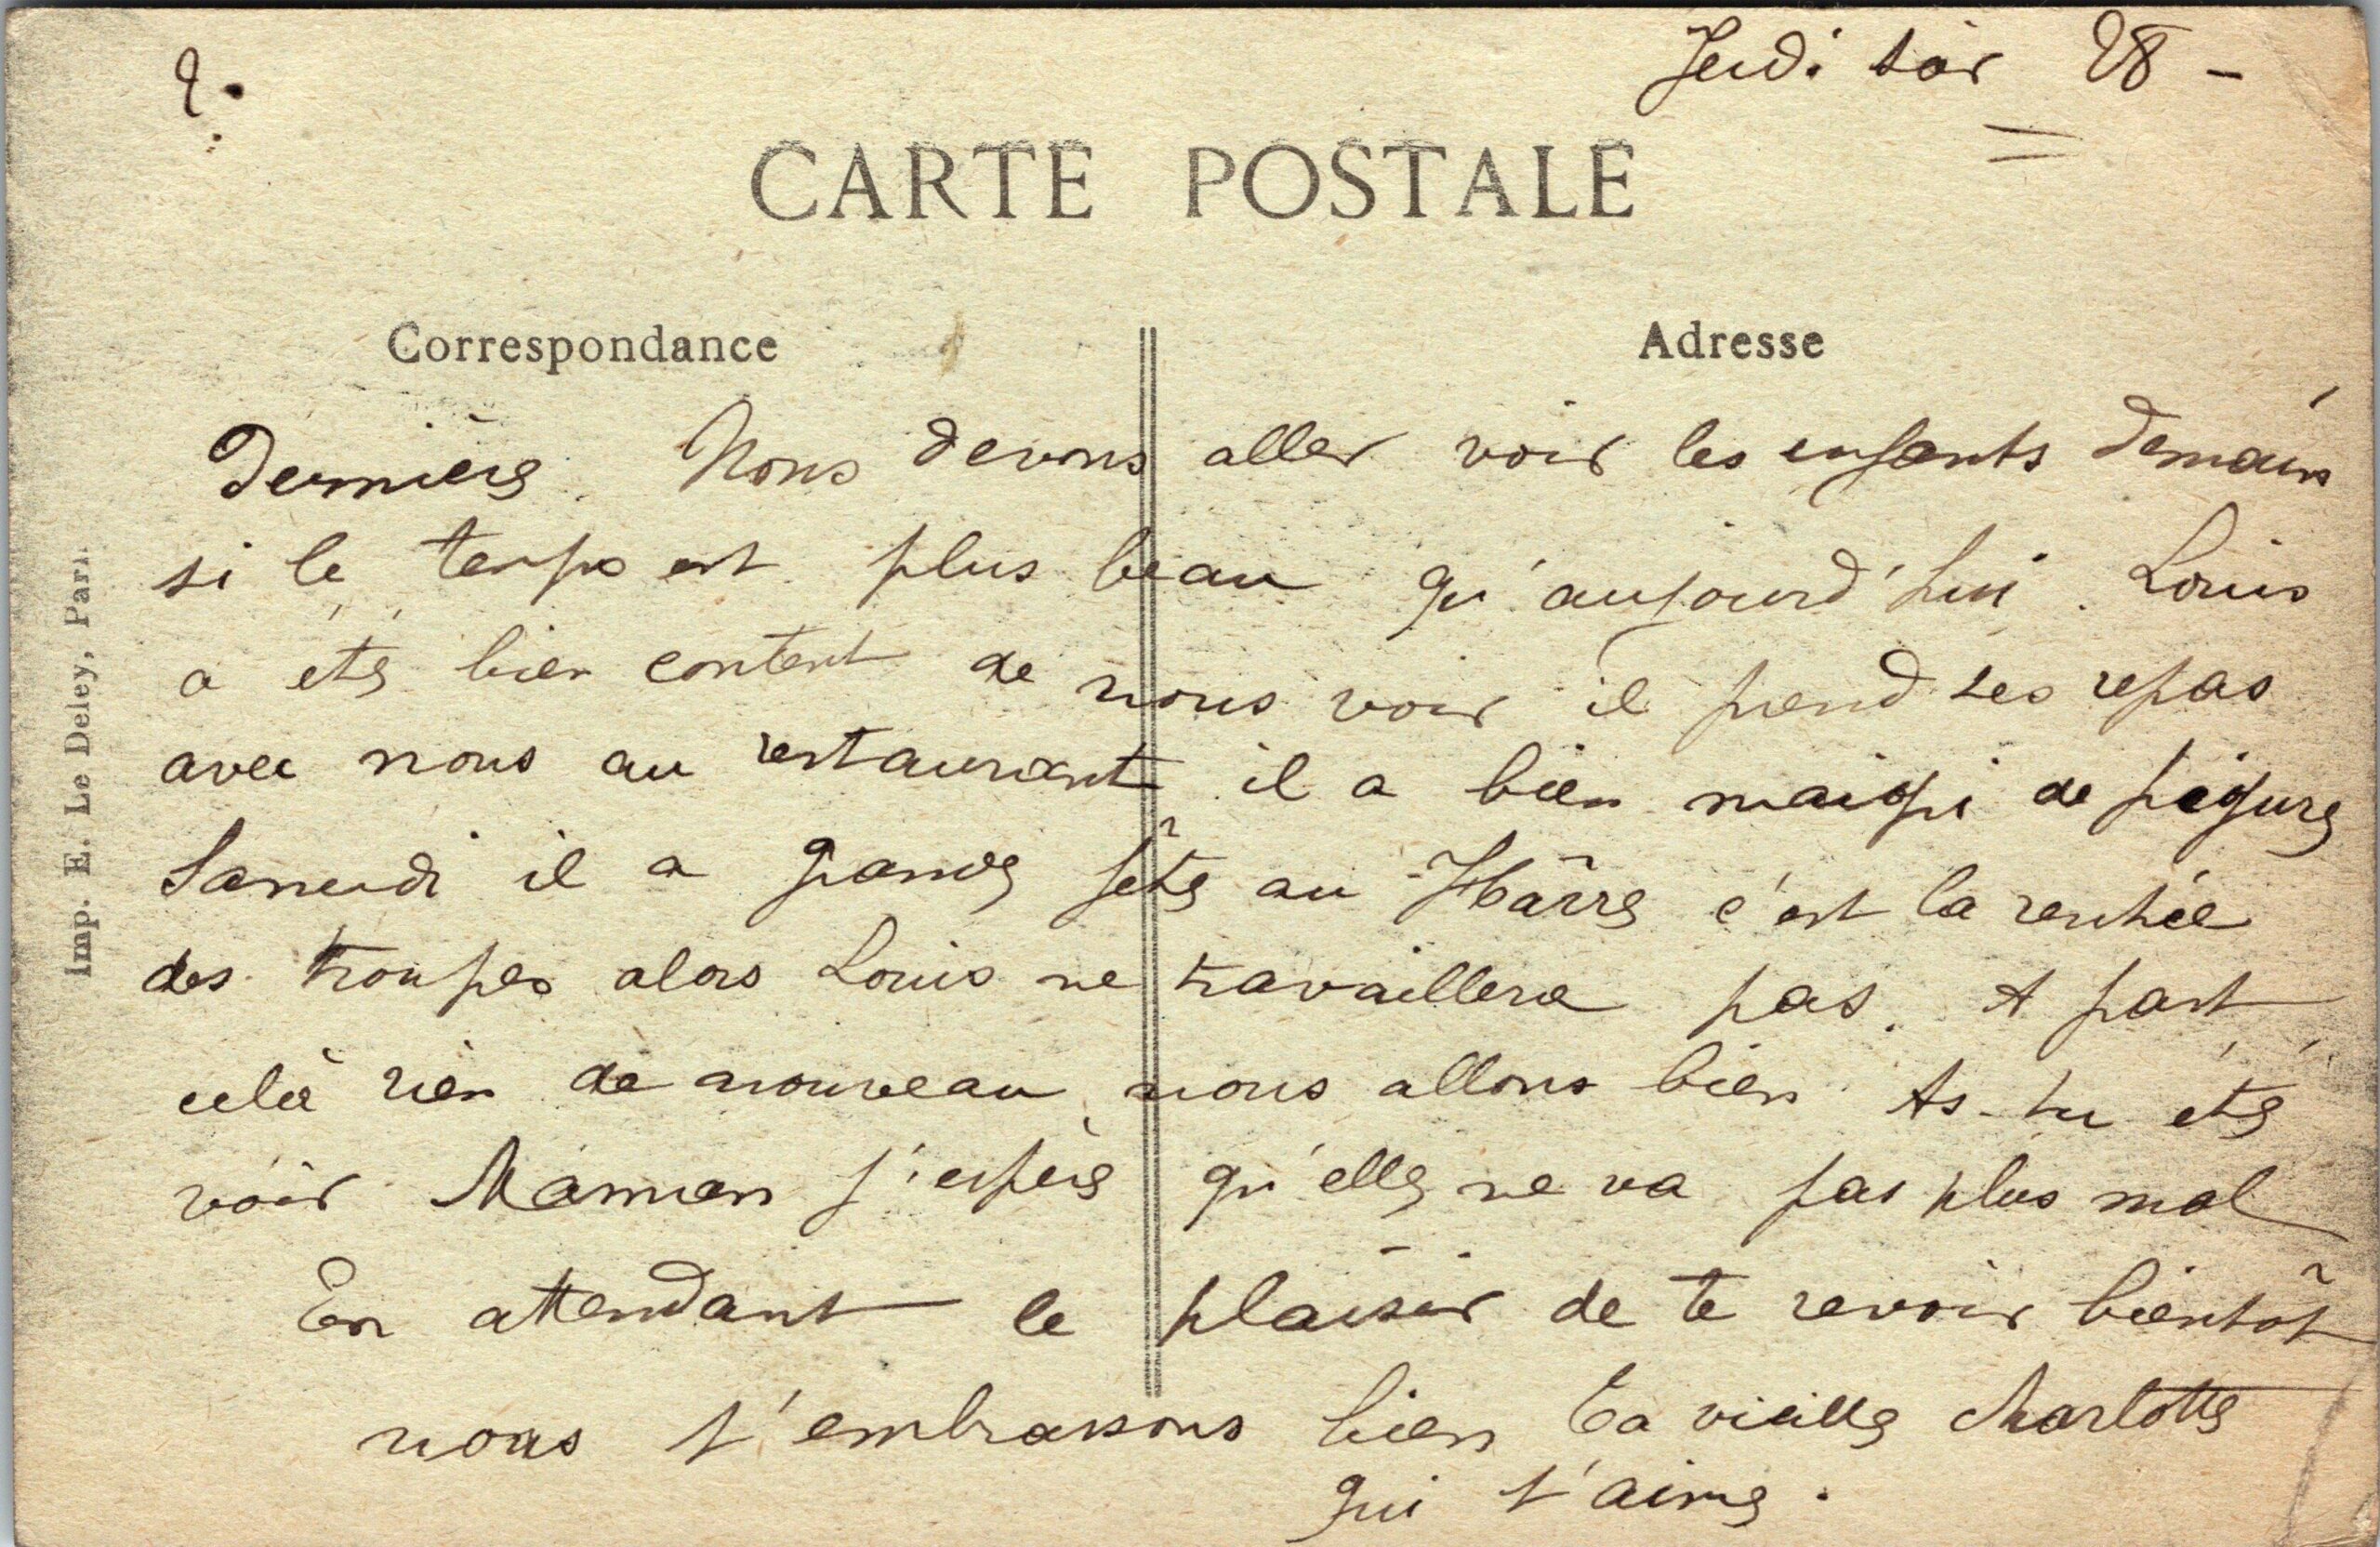 2.
Jeudi soir 28 -
CARTE POSTALE
Correspondance
Adresse
dernière. Nous devons aller voir les enfants demain
si le temps est plus beau qu'aujourd'hui. Louis
a été bien content de nous voir il prend ses repas
avec nous au restaurant il a bien maigri de figure
Samedi il a grande fête au Hâvre c'est la rentrée
des troupes alors Louis ne travaillera pas. A part
celà rien de nouveau, nous allons bien. As-tu été
voir Maman j'espère qu'elle ne va pas plus mal
En attendant le plaisir de te revoir bientôt
nous t'embrassons bien Ta vieille Charlotte
qui t'aime.
Imp. E. Le Deley, Paris